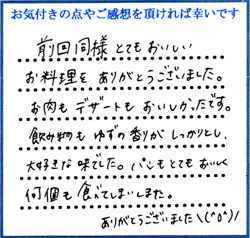 お気付きの点やご感想を頂ければ幸いです
前回同様とてもおいしい
お料理をありがとうございました。
お肉もデザートもおいしかったです。
飲み物もゆずの香りがしっかりとし、
大好きな味でした。パンもとてもおいしく
何個も食べてしまいました。
ありがとうございました\(^o^)/